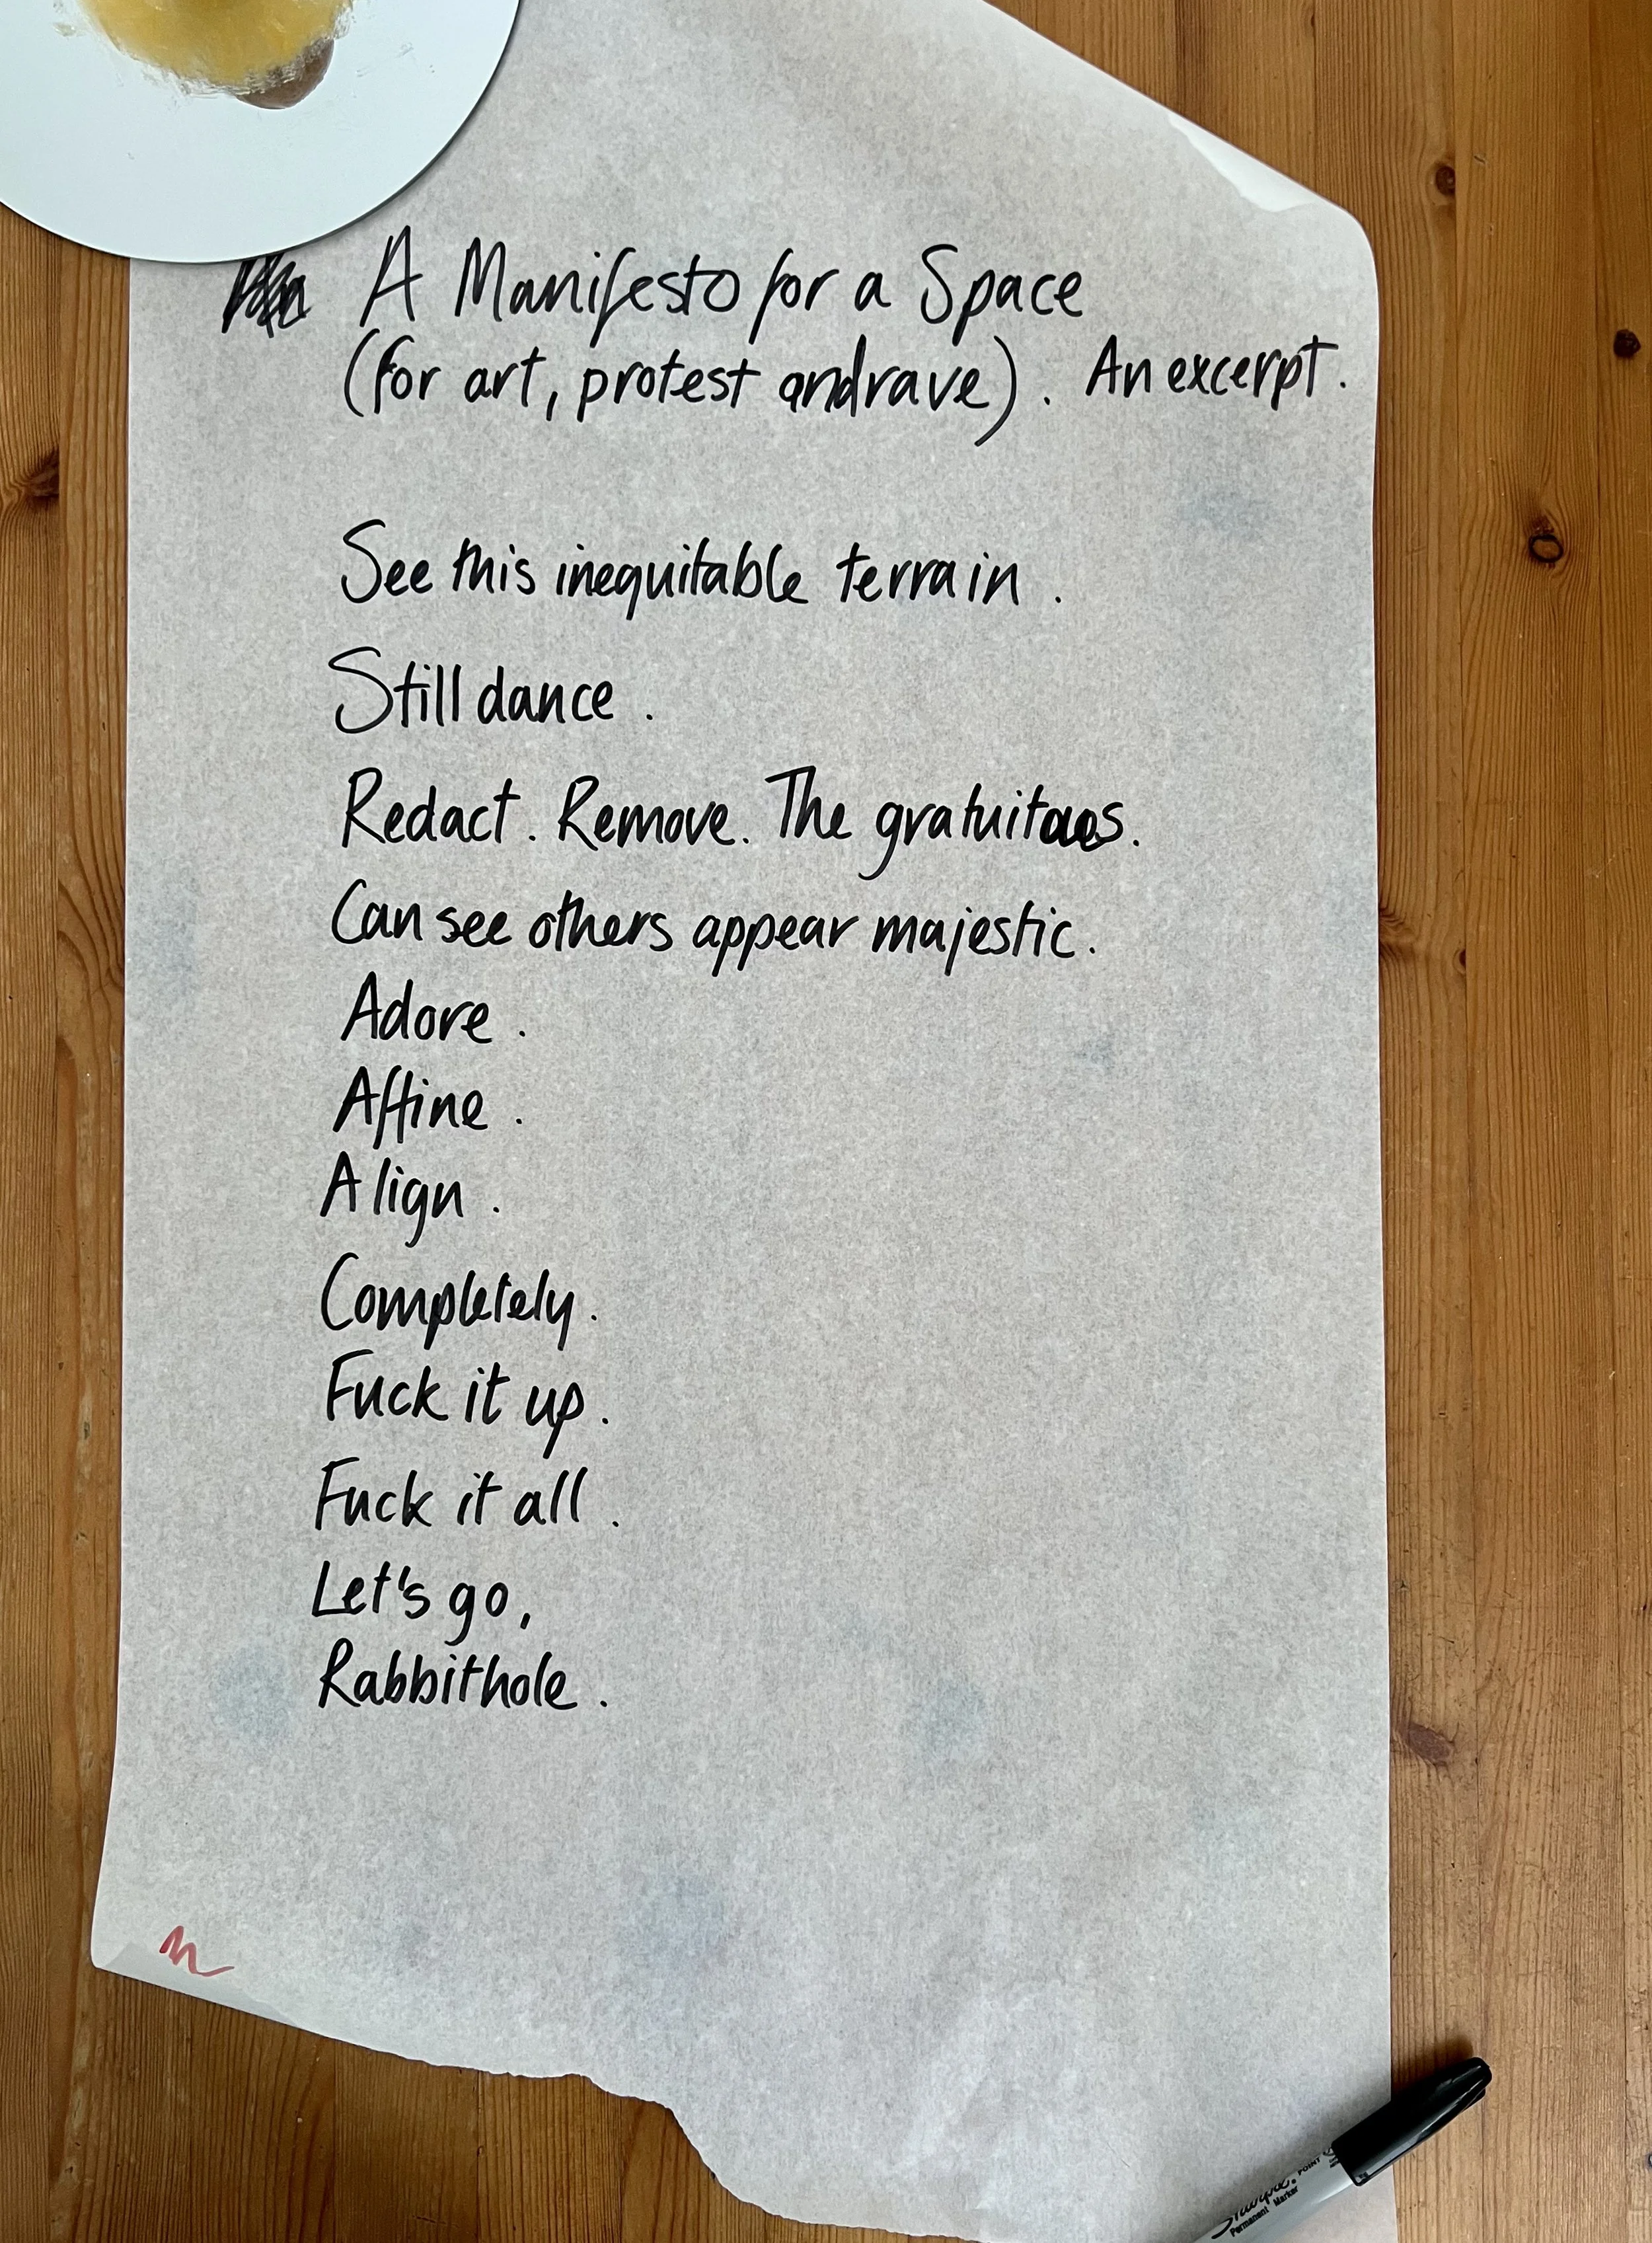 A Manifesto for a Space
(for art, protest and rave). An excerpt.
See this inequitable terrain.
Still dance.
Redact. Remove. The gratuitous.
Can see others appear majestic.
Adore.
Affine.
Align.
Completely.
Fuck it up.
Fuck it all.
Let's go,
Rabbithole.
Sharpie®
Permanent Marker
POINT